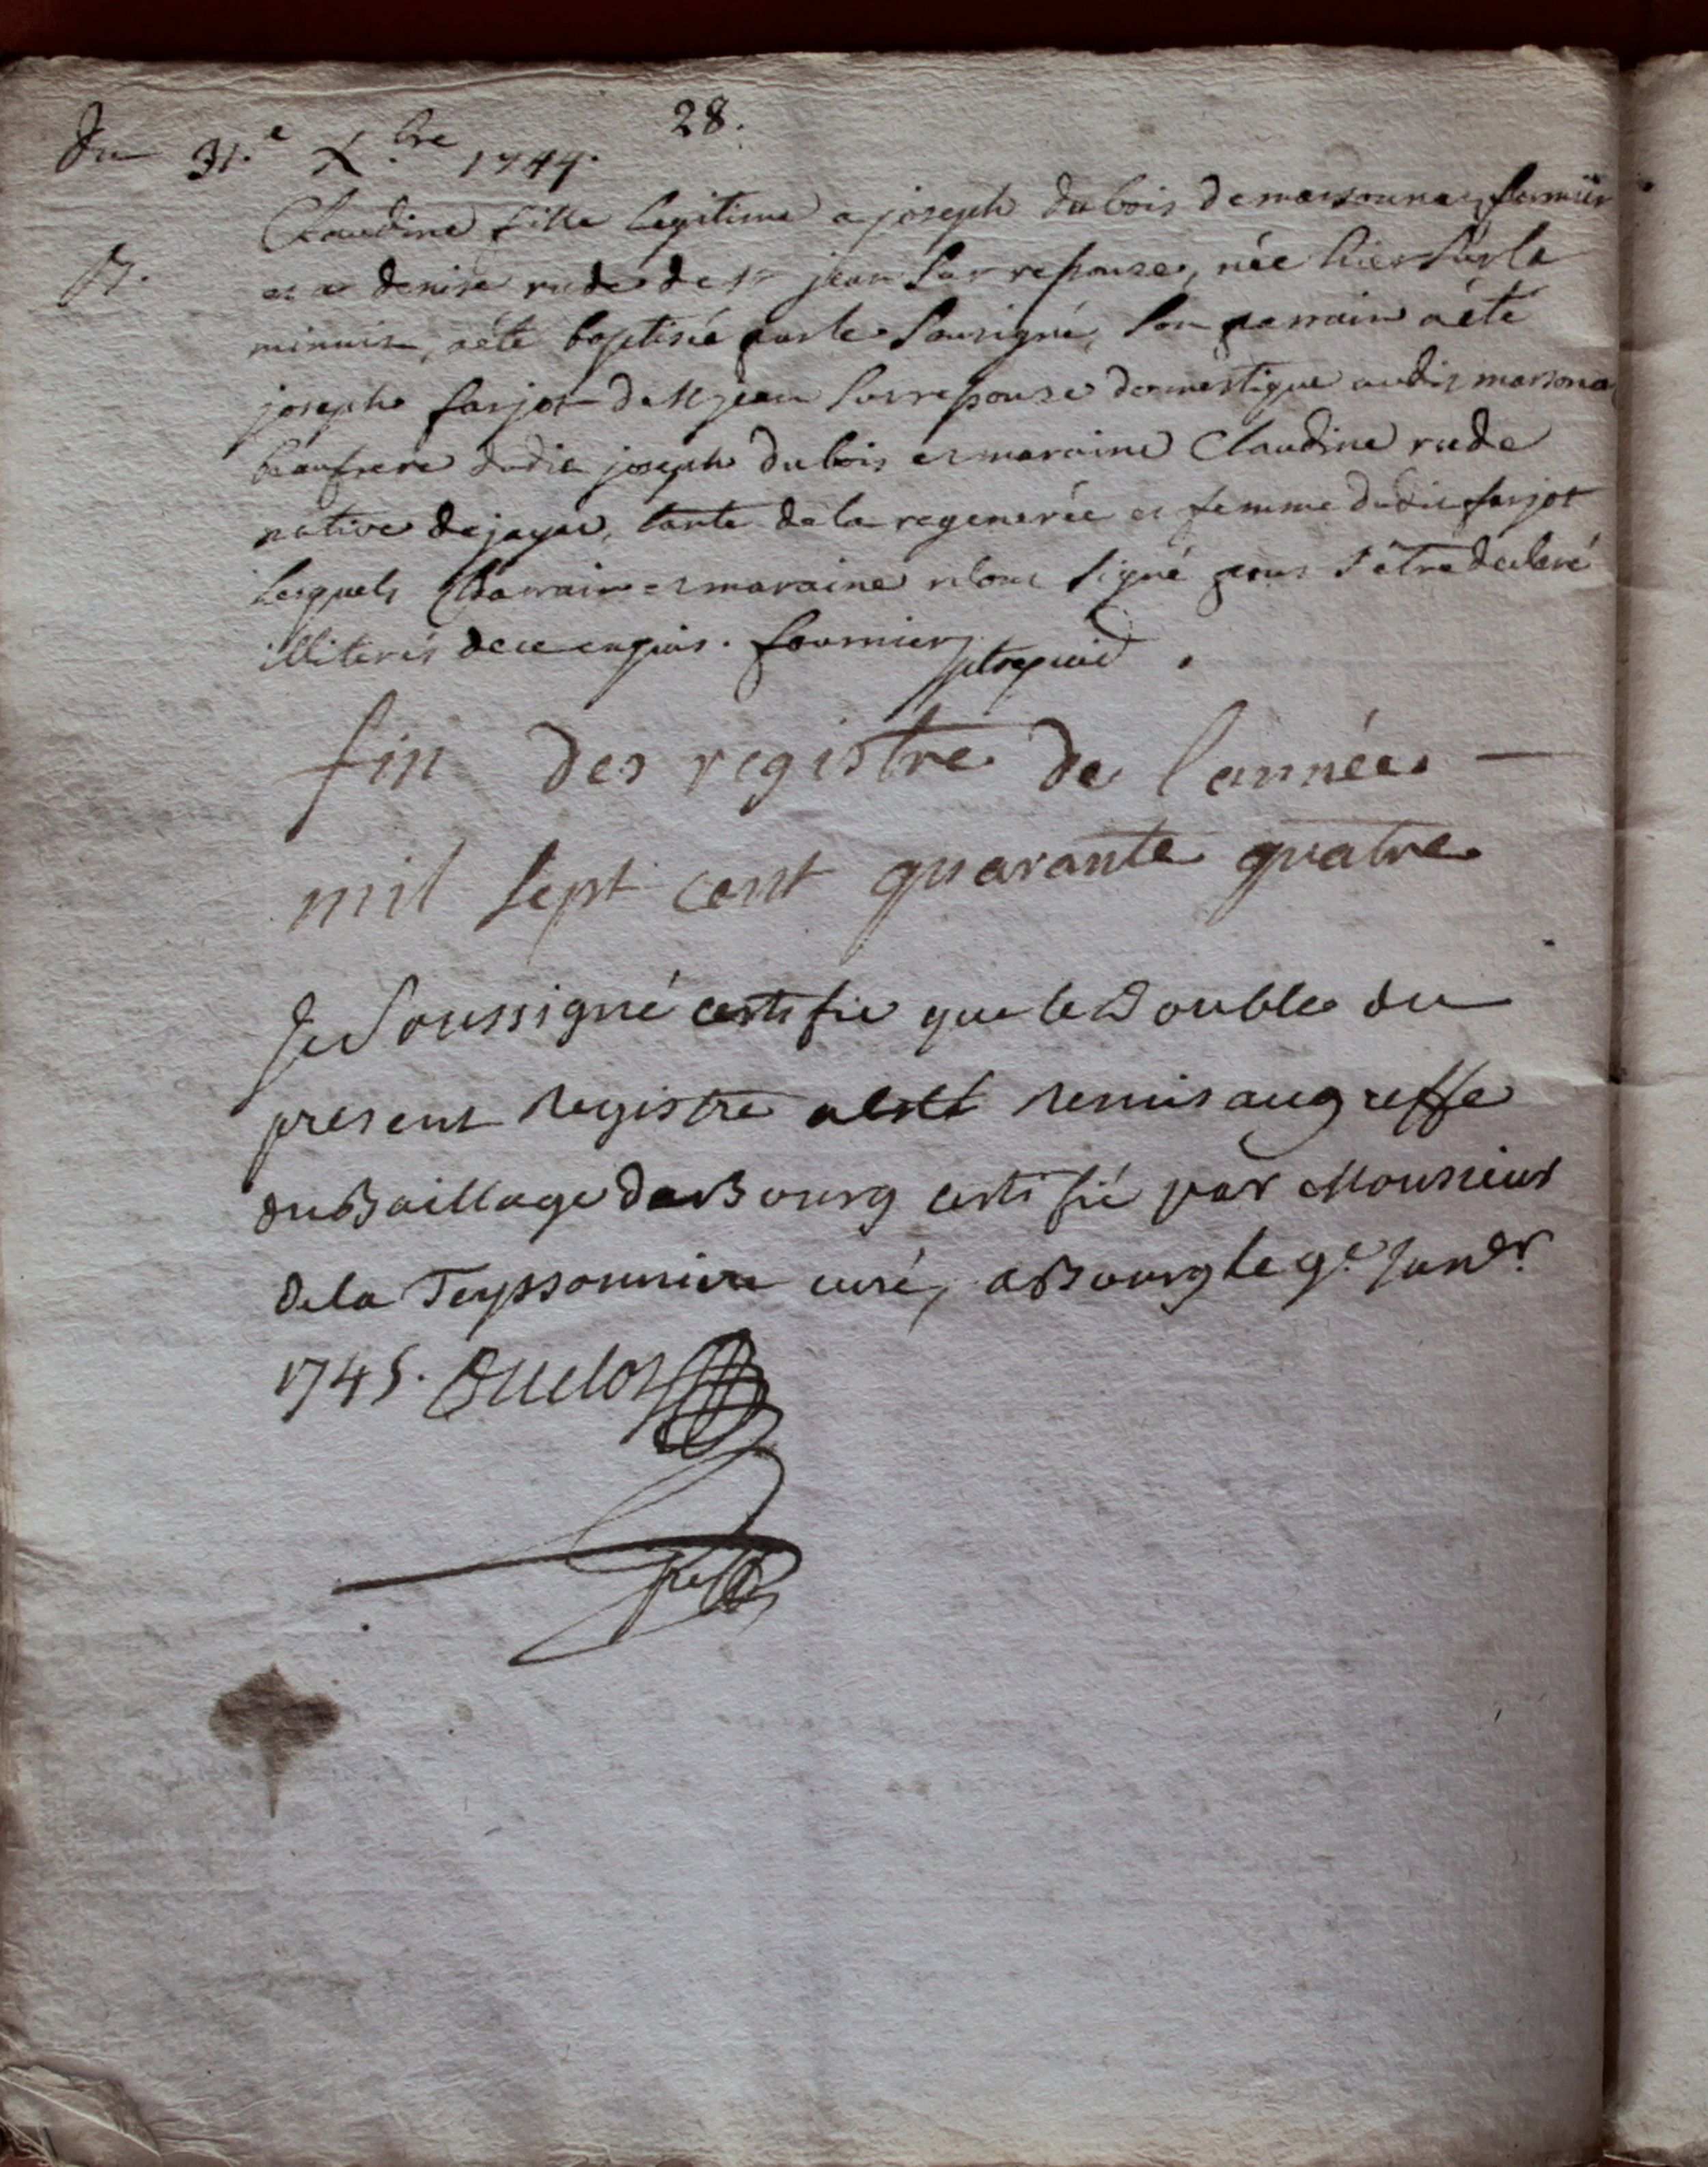 28.
Du 31.e Xbre 1744.
Claudine fille legitime a joseph dubois de marsonnas fermier
B.
et a denise rude de st jean sur resouze, née hier sur la
minuit, a été baptisée par le sousigné, son parrain a été
joseph farjot de st jean sur resouze domestique audit marsona
beaufrere dudit joseph dubois et maraine Claudine rude
native de jayac, tante de la regenerée et femme dudit farjot
lesquels parrain et maraine n'ont signé pour s'être declaré
illiterés de ce enquis. fournier ptre vicaire
fin des registre de l'année
mil sept cent quarante quatre
Je Soussigné certifie que le Double du
present registre a esté remis au greffe
du Baillage de Bourg certifié par Monsieur
de la Teyssonniere curé, a Bourg le 9e Janvr
1745. Duclos